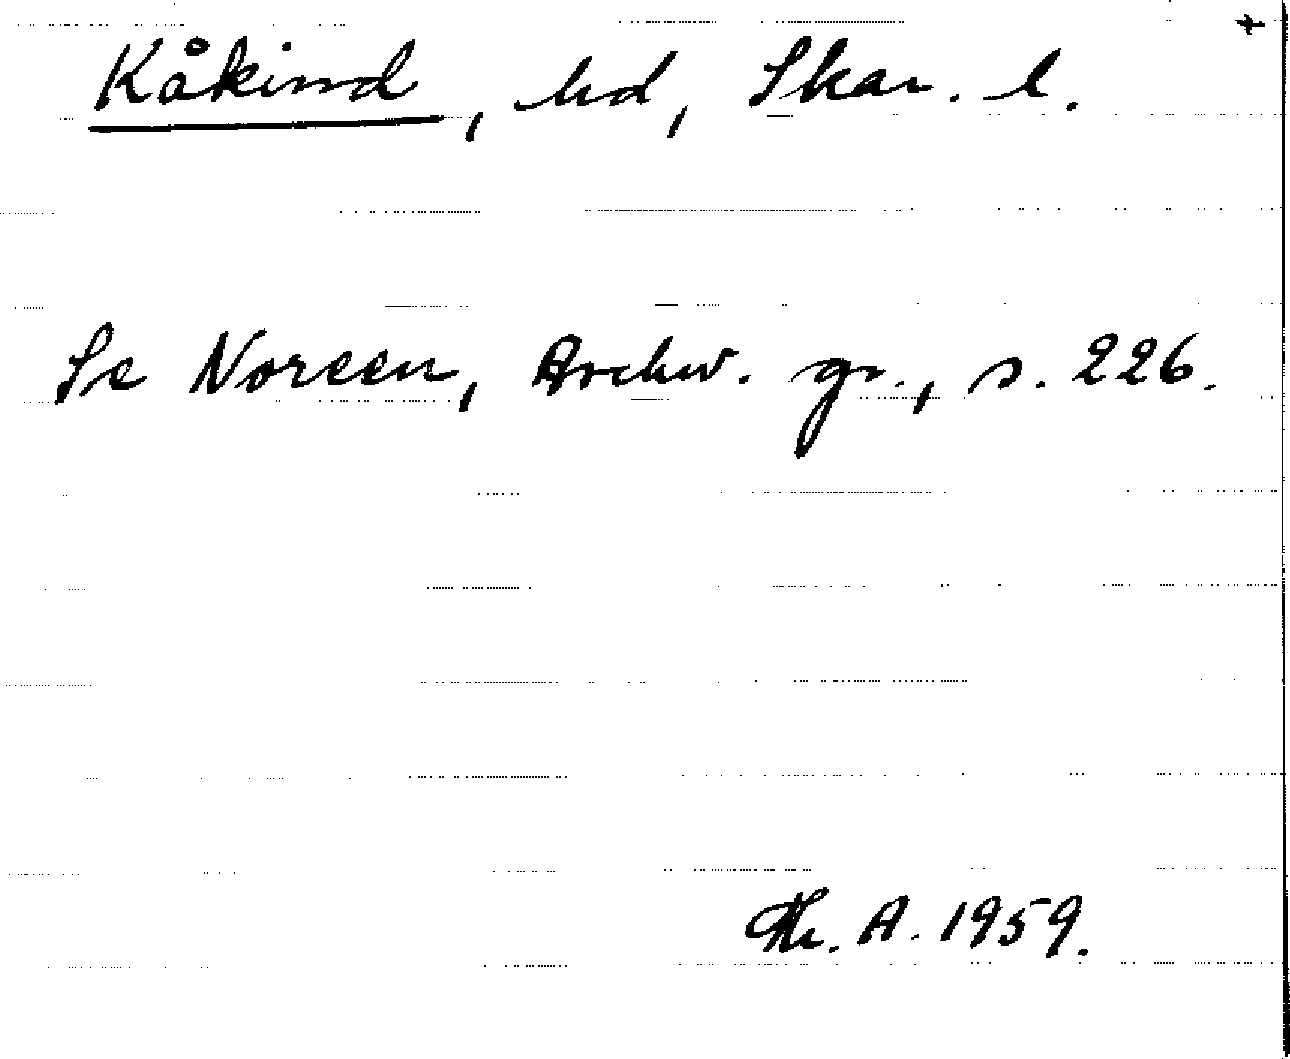 +
Kåkind, hd, Skar. l.
Se Noreen, Aschw. gr., s. 226.
Th. A. 1959.